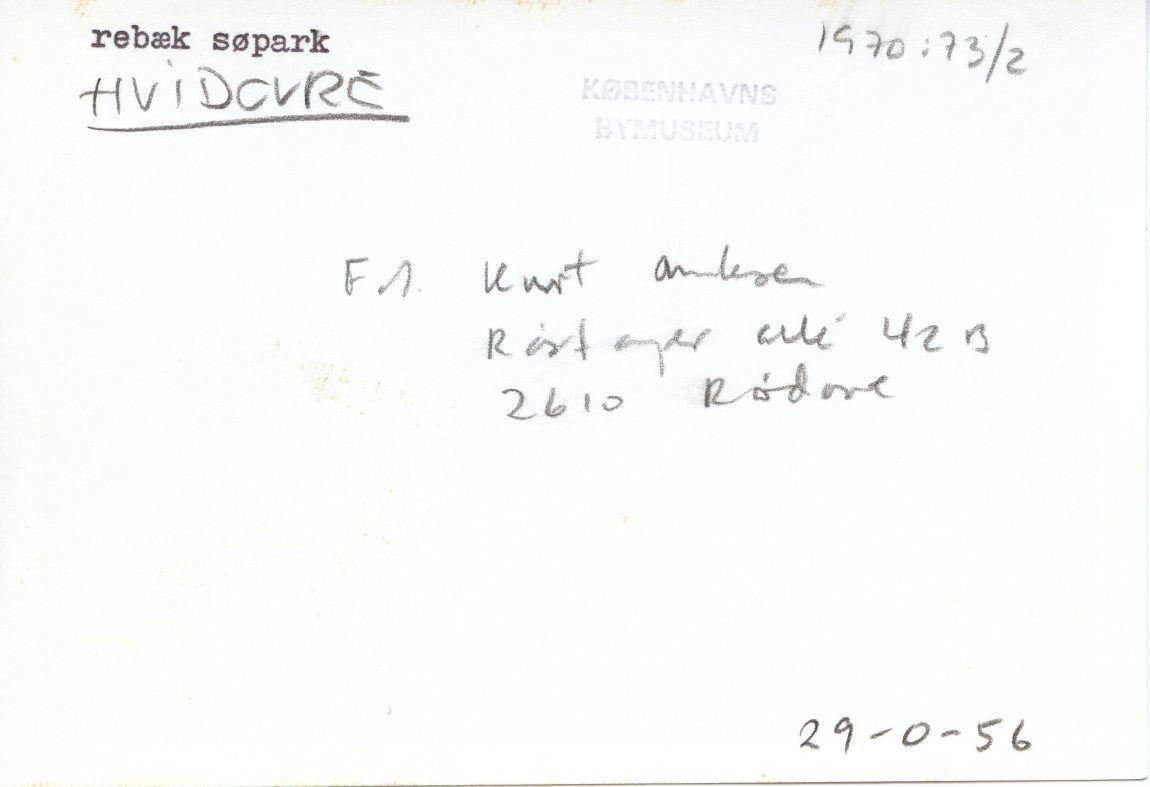 rebæk søpark
1970:73/2
HVIDOVRE
KØBENHAVNS
BYMUSEUM
F.1. Kurt
42 B
2610 Rødovre
29-0-56